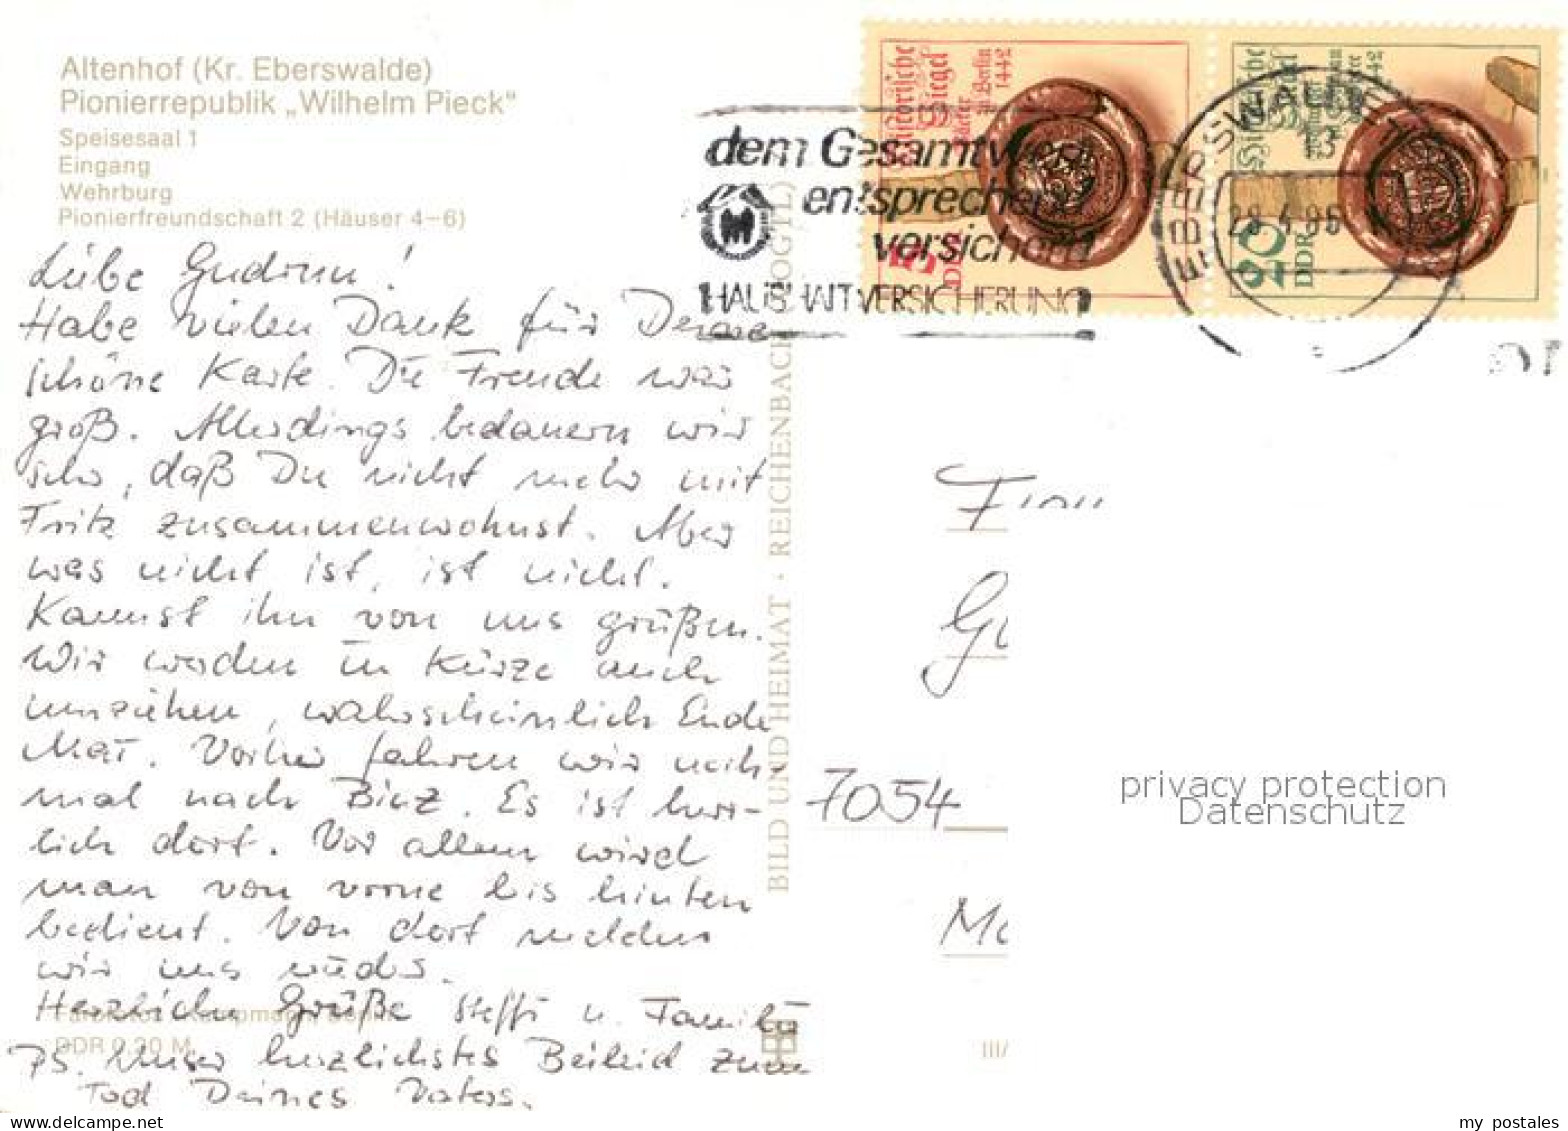 Altenhof (Kr. Eberswalde)
Pionierrepublik „Wilhelm Pieck“
Speisesaal 1
Eingang
Wehrburg
Pionierfreundschaft 2 (Häuser 4–6)
Liebe Gudrun!
Habe vielen Dank für Deine
schöne Karte. Die Freude war
groß. Allerdings bedauern wir
sehr, daß Du nicht mehr mit
Fritz zusammenwohnst. Aber
was nicht ist, ist nicht.
Kannst ihn von uns grüßen.
Wir werden in Kürze auch
umziehen, wahrscheinlich Ende
Mai. Vorher fahren wir noch-
mal nach Binz. Es ist herr-
lich dort. Vor allem wird
man von vorne bis hinten
bedient. Von dort melden
wir uns wieder.
Herzliche Grüße Steffi u. Familie
DDR 0,20 M
PS. Unser herzlichstes Beileid zum
Tod Deines Vaters.
BILD UND HEIMAT · REICHENBACH (VOGTL)
dem Gesamtwert
entsprechend
versichern
HAUSHALTVERSICHERUNG
Historische
Siegel
Bäcker
zu Berlin
1442
DDR
Historische
Siegel
1442
20
DDR
EBERSWALDE
28.4.86
Frau
Gu
7054
Mo
III/
privacy protection
Datenschutz
my postales